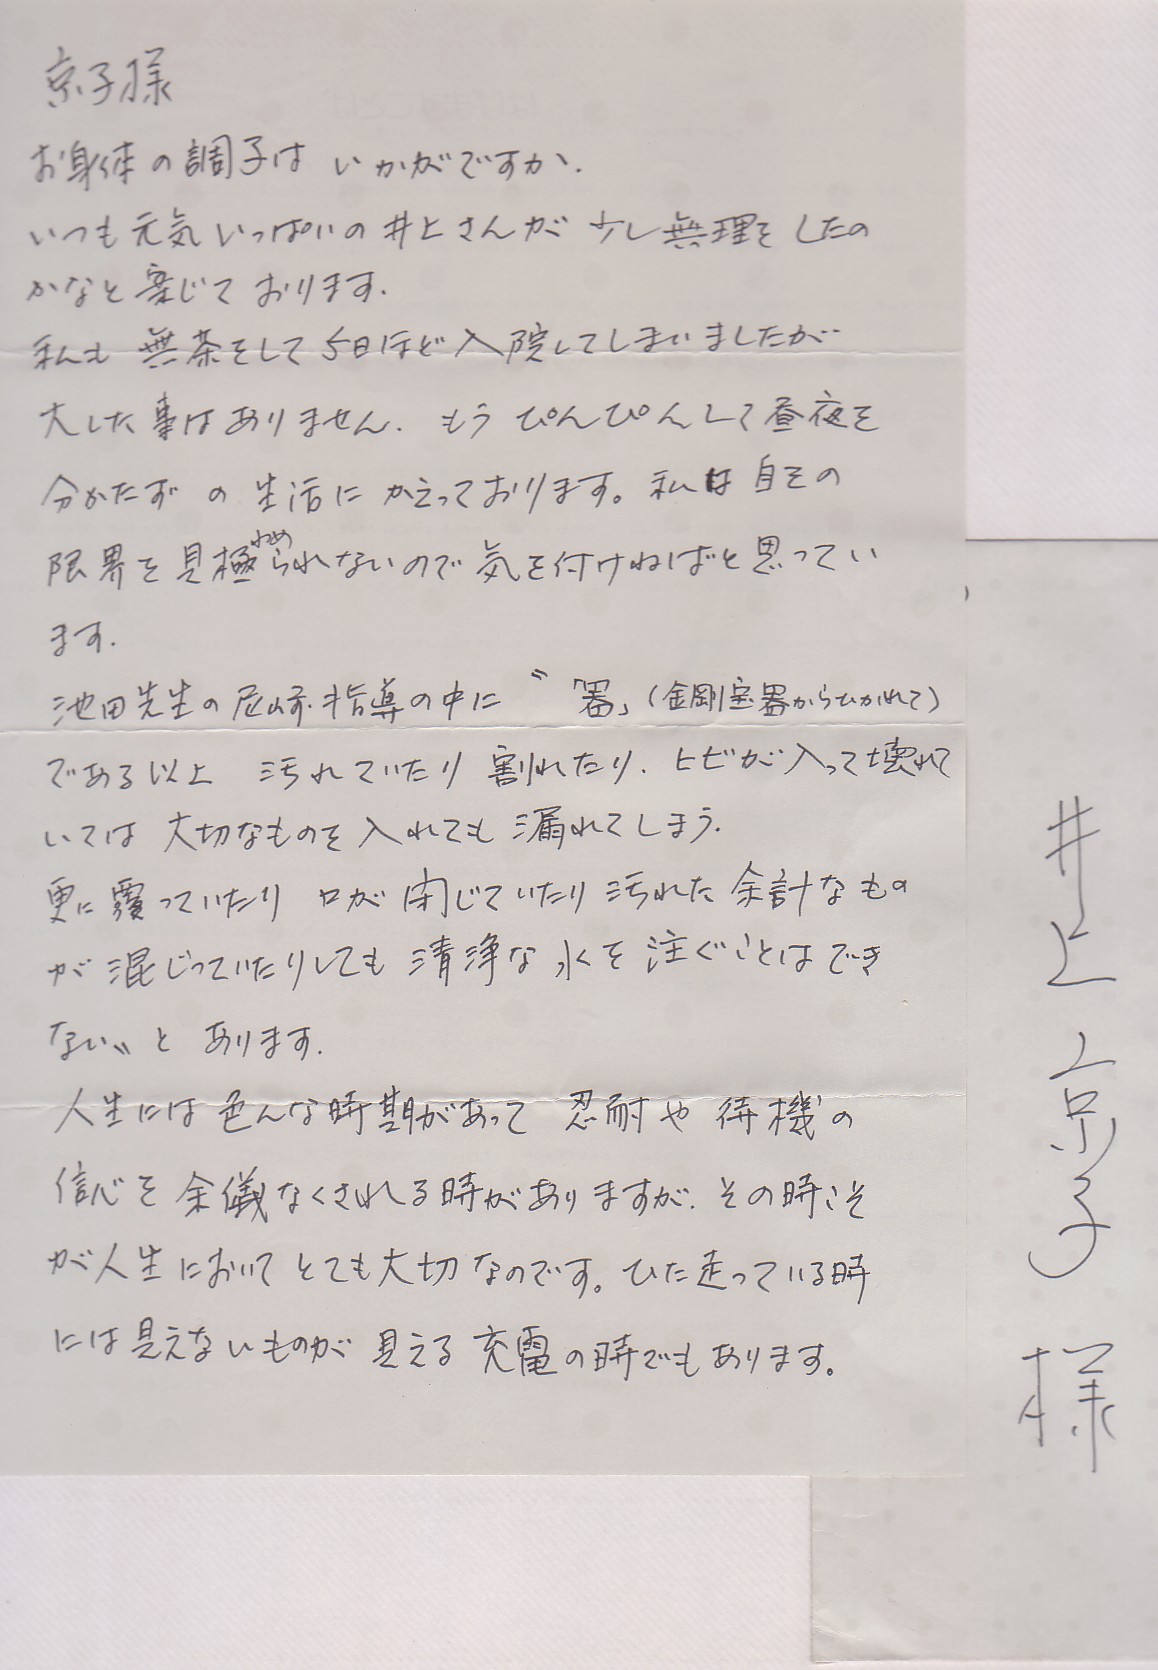 京子様
お身体の調子は いかがですか.
いつも元気いっぱいの井上さんが 少し無理をしたの
かなと案じて おります.
私も 無茶をして5日ほど入院してしまいましたが
大した事はありません. もう ぴんぴんして昼夜を
分かたず の 生活に かえっております。私は 自その
限界を見極められないので気を付けねばと思ってい
わめ
ます.
池田先生の尼崎指導の中に〝「器」(金剛宝器からひかれて)
である以上 汚れていたり 割れたり. ヒビが入って壊れて
いては 大切なものを入れても漏れてしまう.
更に覆っていたり 口が閉じていたり汚れた余計なもの
が混じっていたりしても 清浄な水を注ぐことはでき
ない〟と あります.
人生には色んな時期があって 忍耐や待機の
信心を余儀なくされる時がありますが. その時こそ
が人生において とても大切なのです。ひた走っている時
には見えないものが 見える 充電の時でもあります。
井上京子様